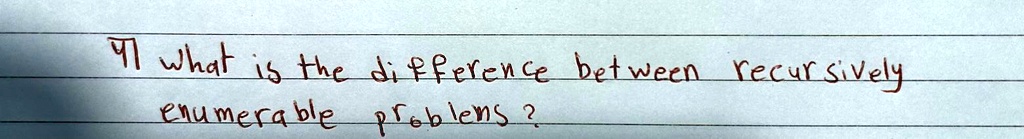 4) what is the difference between recursively
enumerable problems ?